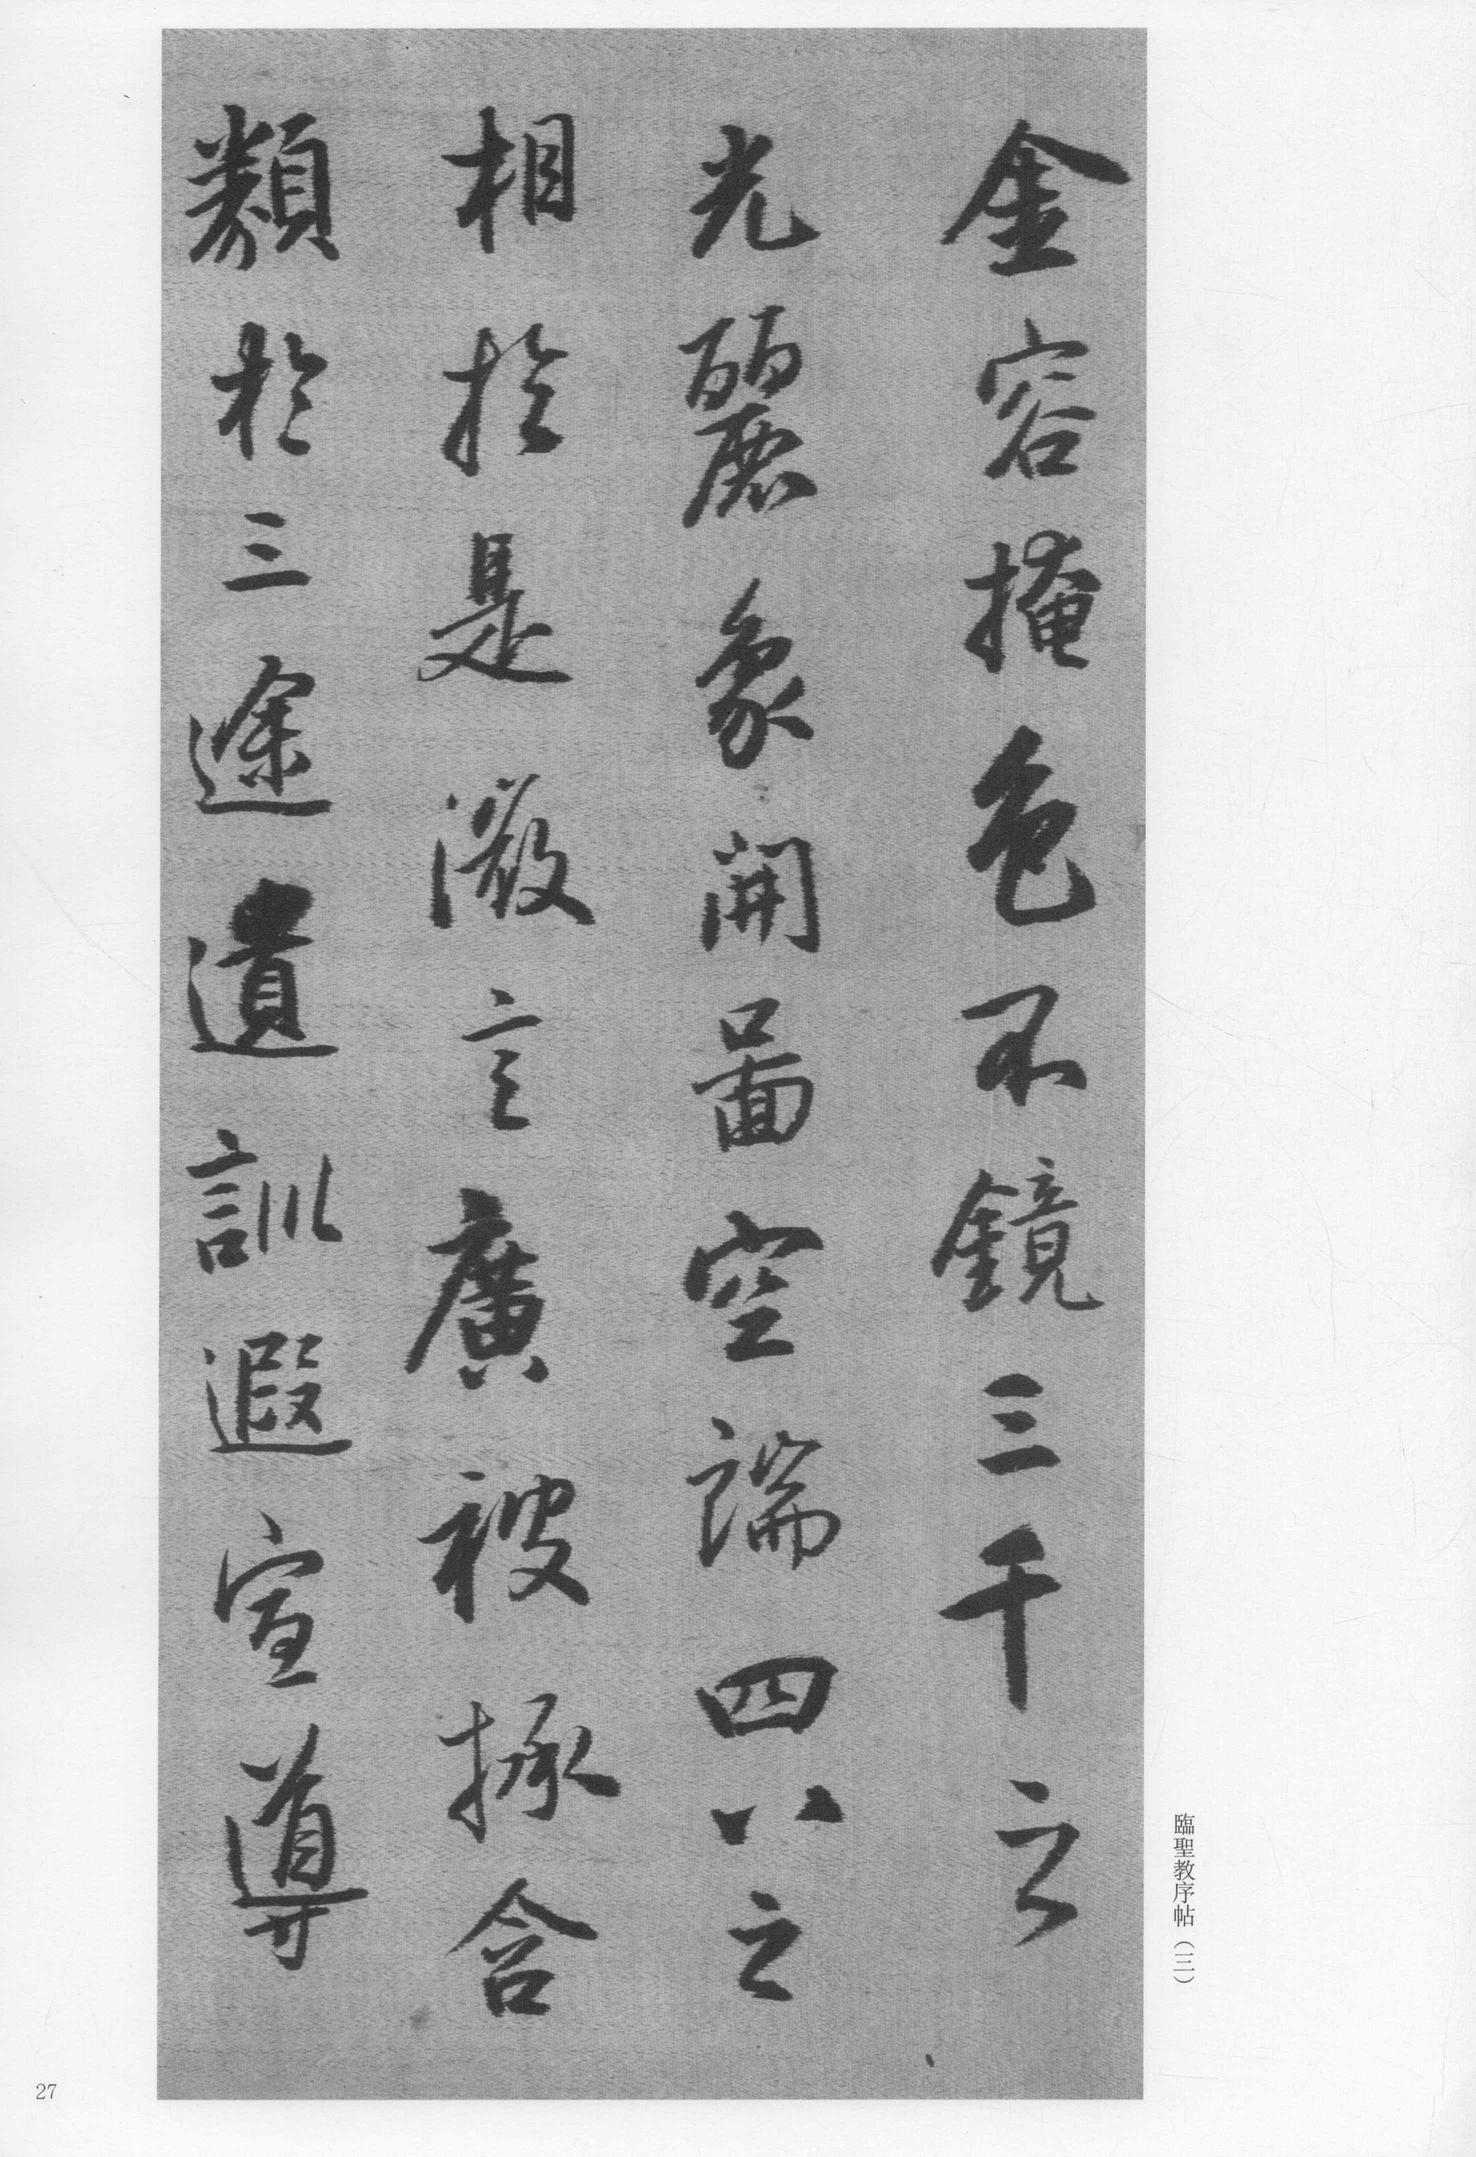 金容掩色不鏡三千之
光麗象開圖空端四八之
相於是微言廣被拯含
類於三途遺訓遐宣導
臨聖教序帖(三)
27